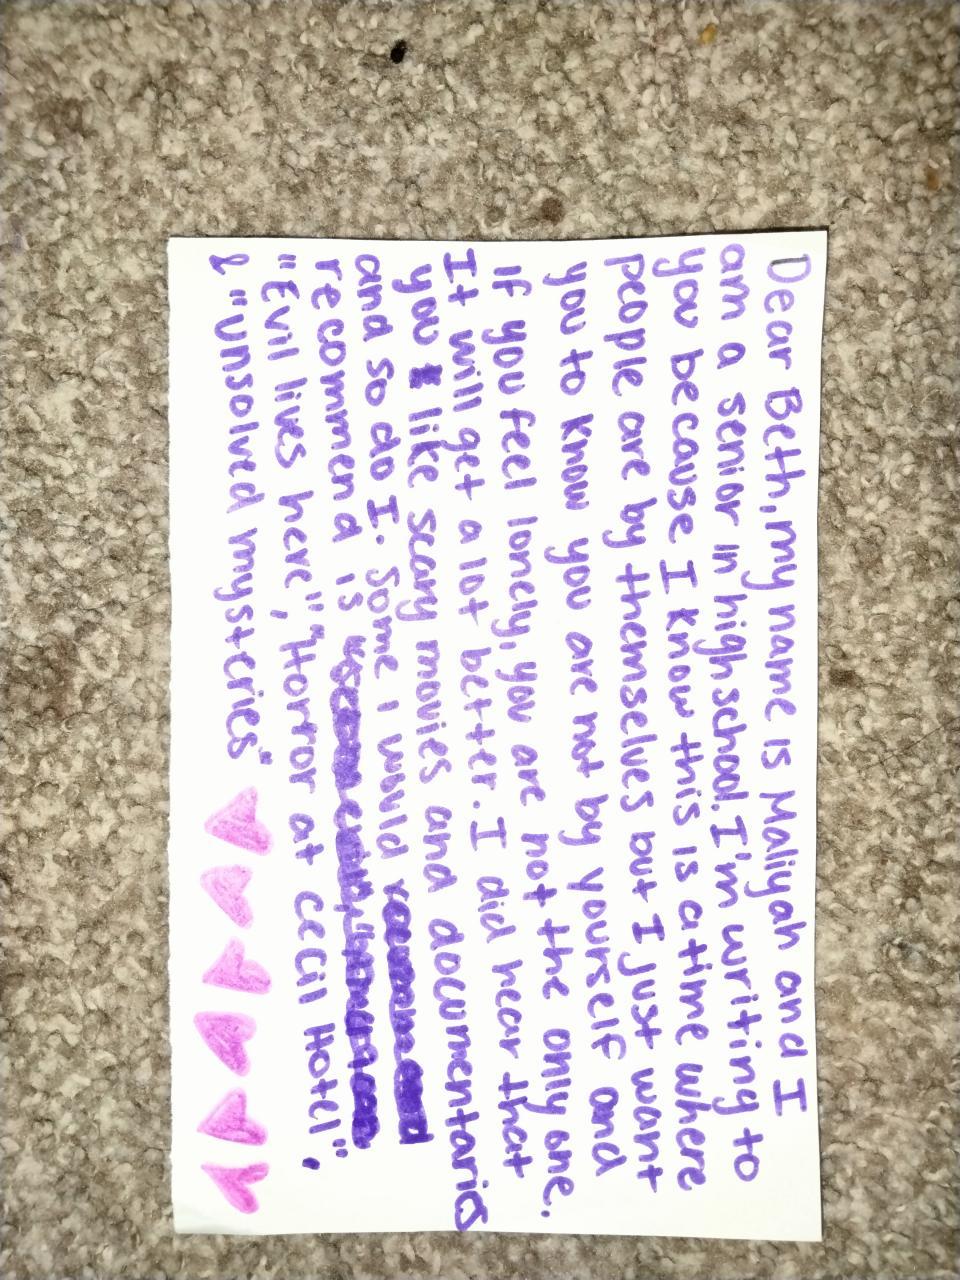 Dear Beth, my name is Maliyah and I
am a senior in highschool. I'm writing to
you because I know this is a time where
people are by themselves but I just want
you to know you are not by yourself and
If you feel lonely, you are not the only one.
It will get a lot better. I did hear that
you like scary movies and documentaries
and so do I. Some I would
recommend is
"Evil lives here", "Horror at Cecil Hotel",
& "Unsolved mysteries"